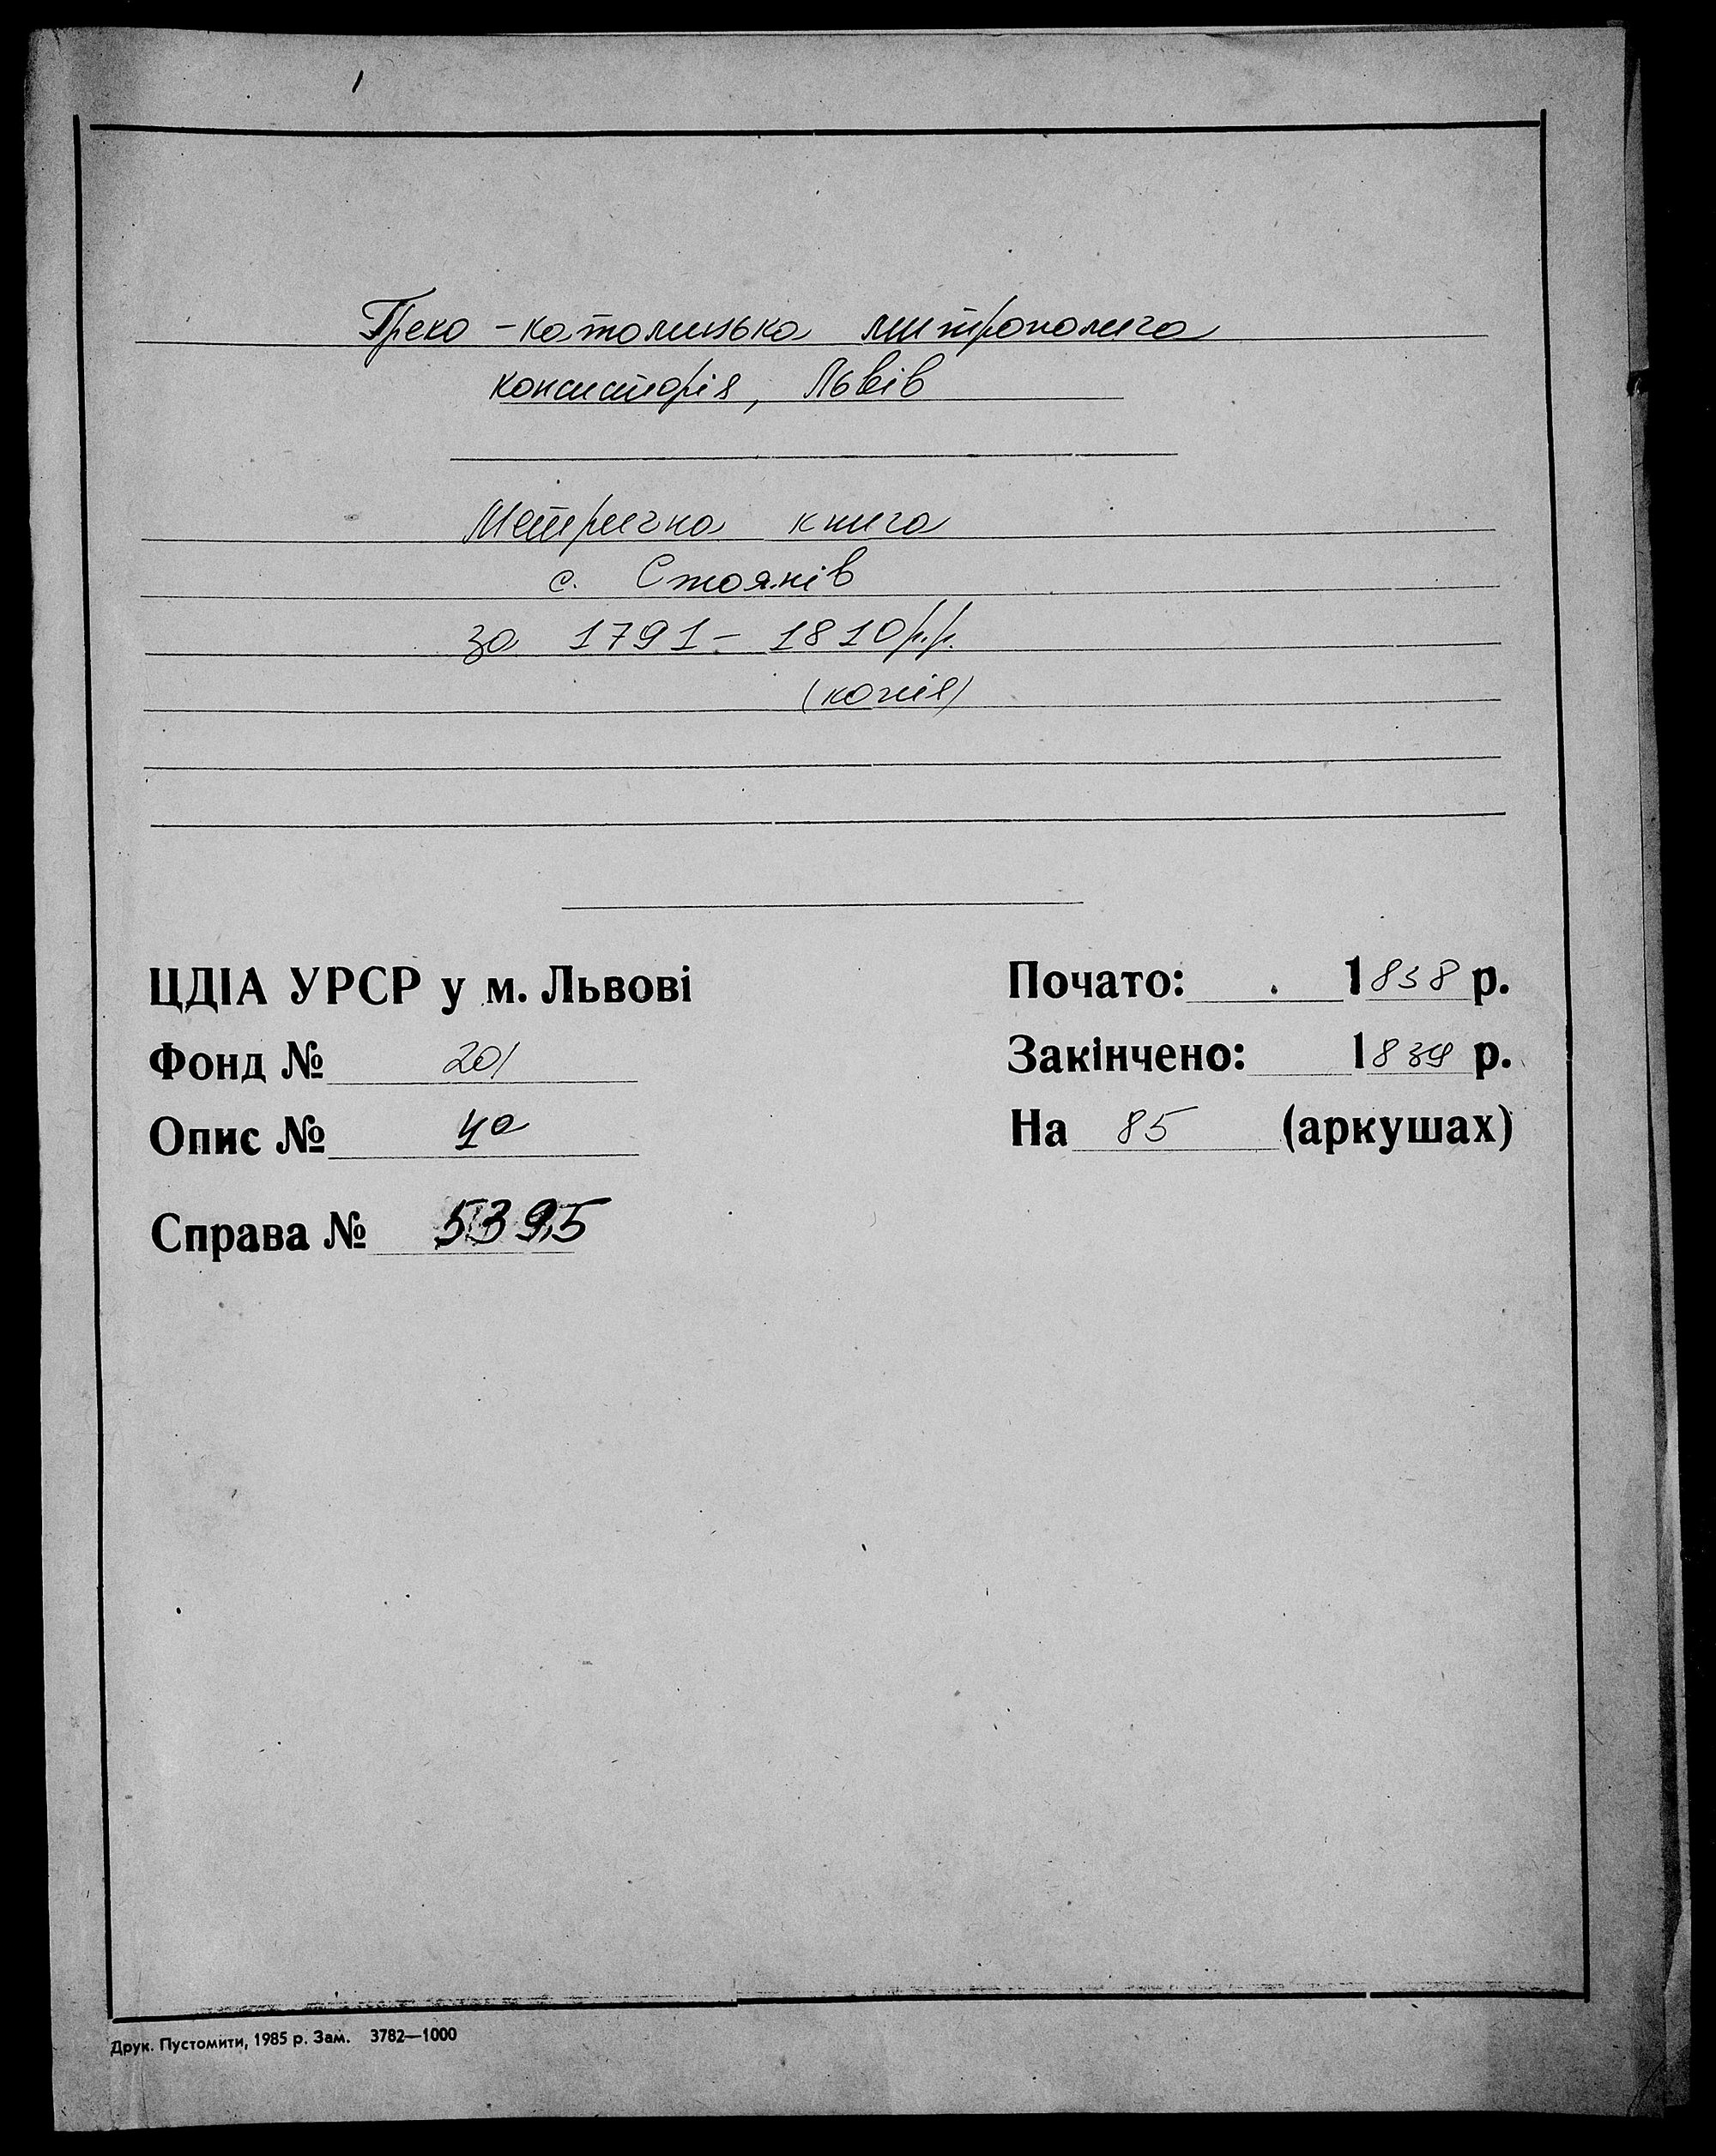 Греко-католицька митрополича
консисторія, Львів
Метрична книга
с. Стоянів
за 1791-1810 р.р.
(копія)
ЦДІА УРСР у м. Львові
Фонд № 201
Опис № 4а
Справа № 5395
Почато: . 1838 р.
Закінчено: 1839 р.
На 85 (аркушах)
Друк. Пустомити, 1985 р. Зам. 3782—1000